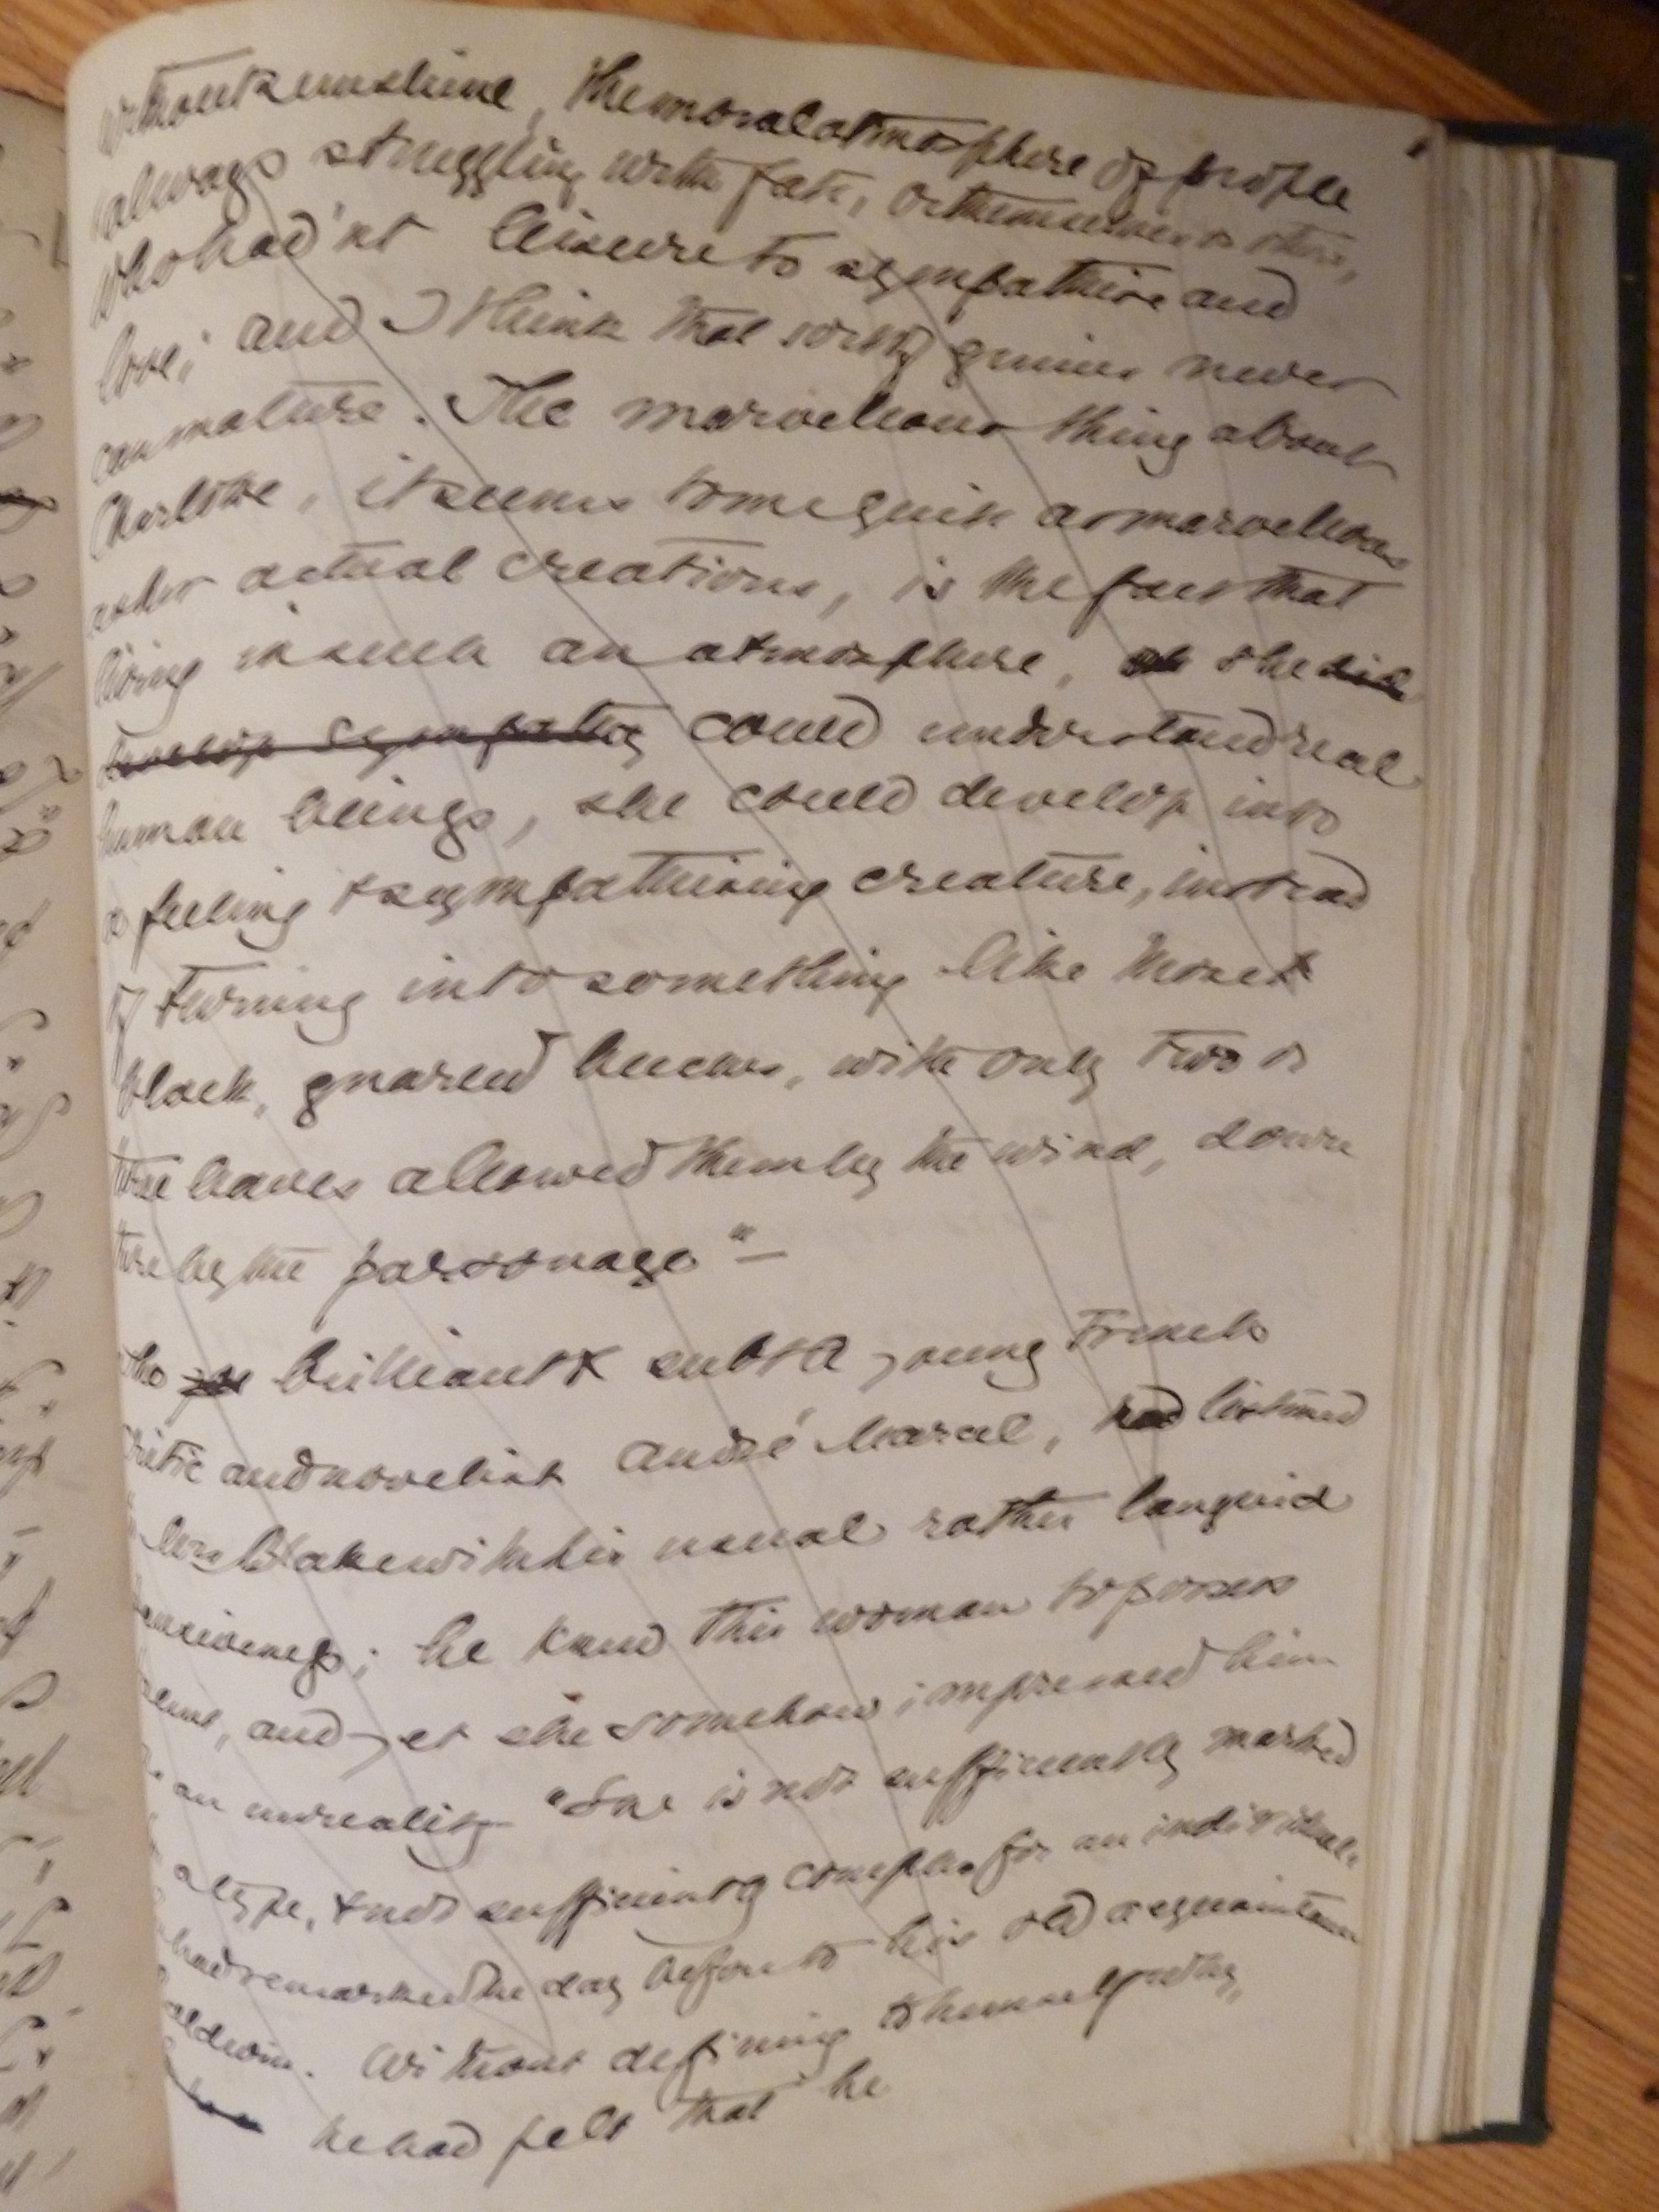 without sunshine, the moral atmosphere of people
always struggling with fate, or themselves or others,
who had'nt leisure to sympathise and
love; and I think that sort of genius never
can mature. The marvellous thing about
Charlotte, it seems to me quite as marvellous
as her actual creations, is the fact that
living in such an atmosphere, she did
develop sympathy could understand real
human beings, she could develop into
a feeling & sympathising creature, instead
of turning into something like those
black, gnarled beeches, with only two or
three leaves allowed them by the wind, down
there by the parsonage" —
The brilliant & subtle young French
critic and novelist André Marcel, had listened
to Mrs Blake with his usual rather languid
; he knew this woman to possess
talent, and yet she somehow impressed him
as an unreality. "She is not sufficiently marked
a type, & not sufficiently complex for an individual"
he had remarked the day before to his old acquaintance
Baldwin. Without defining to himself why,
he had felt that he